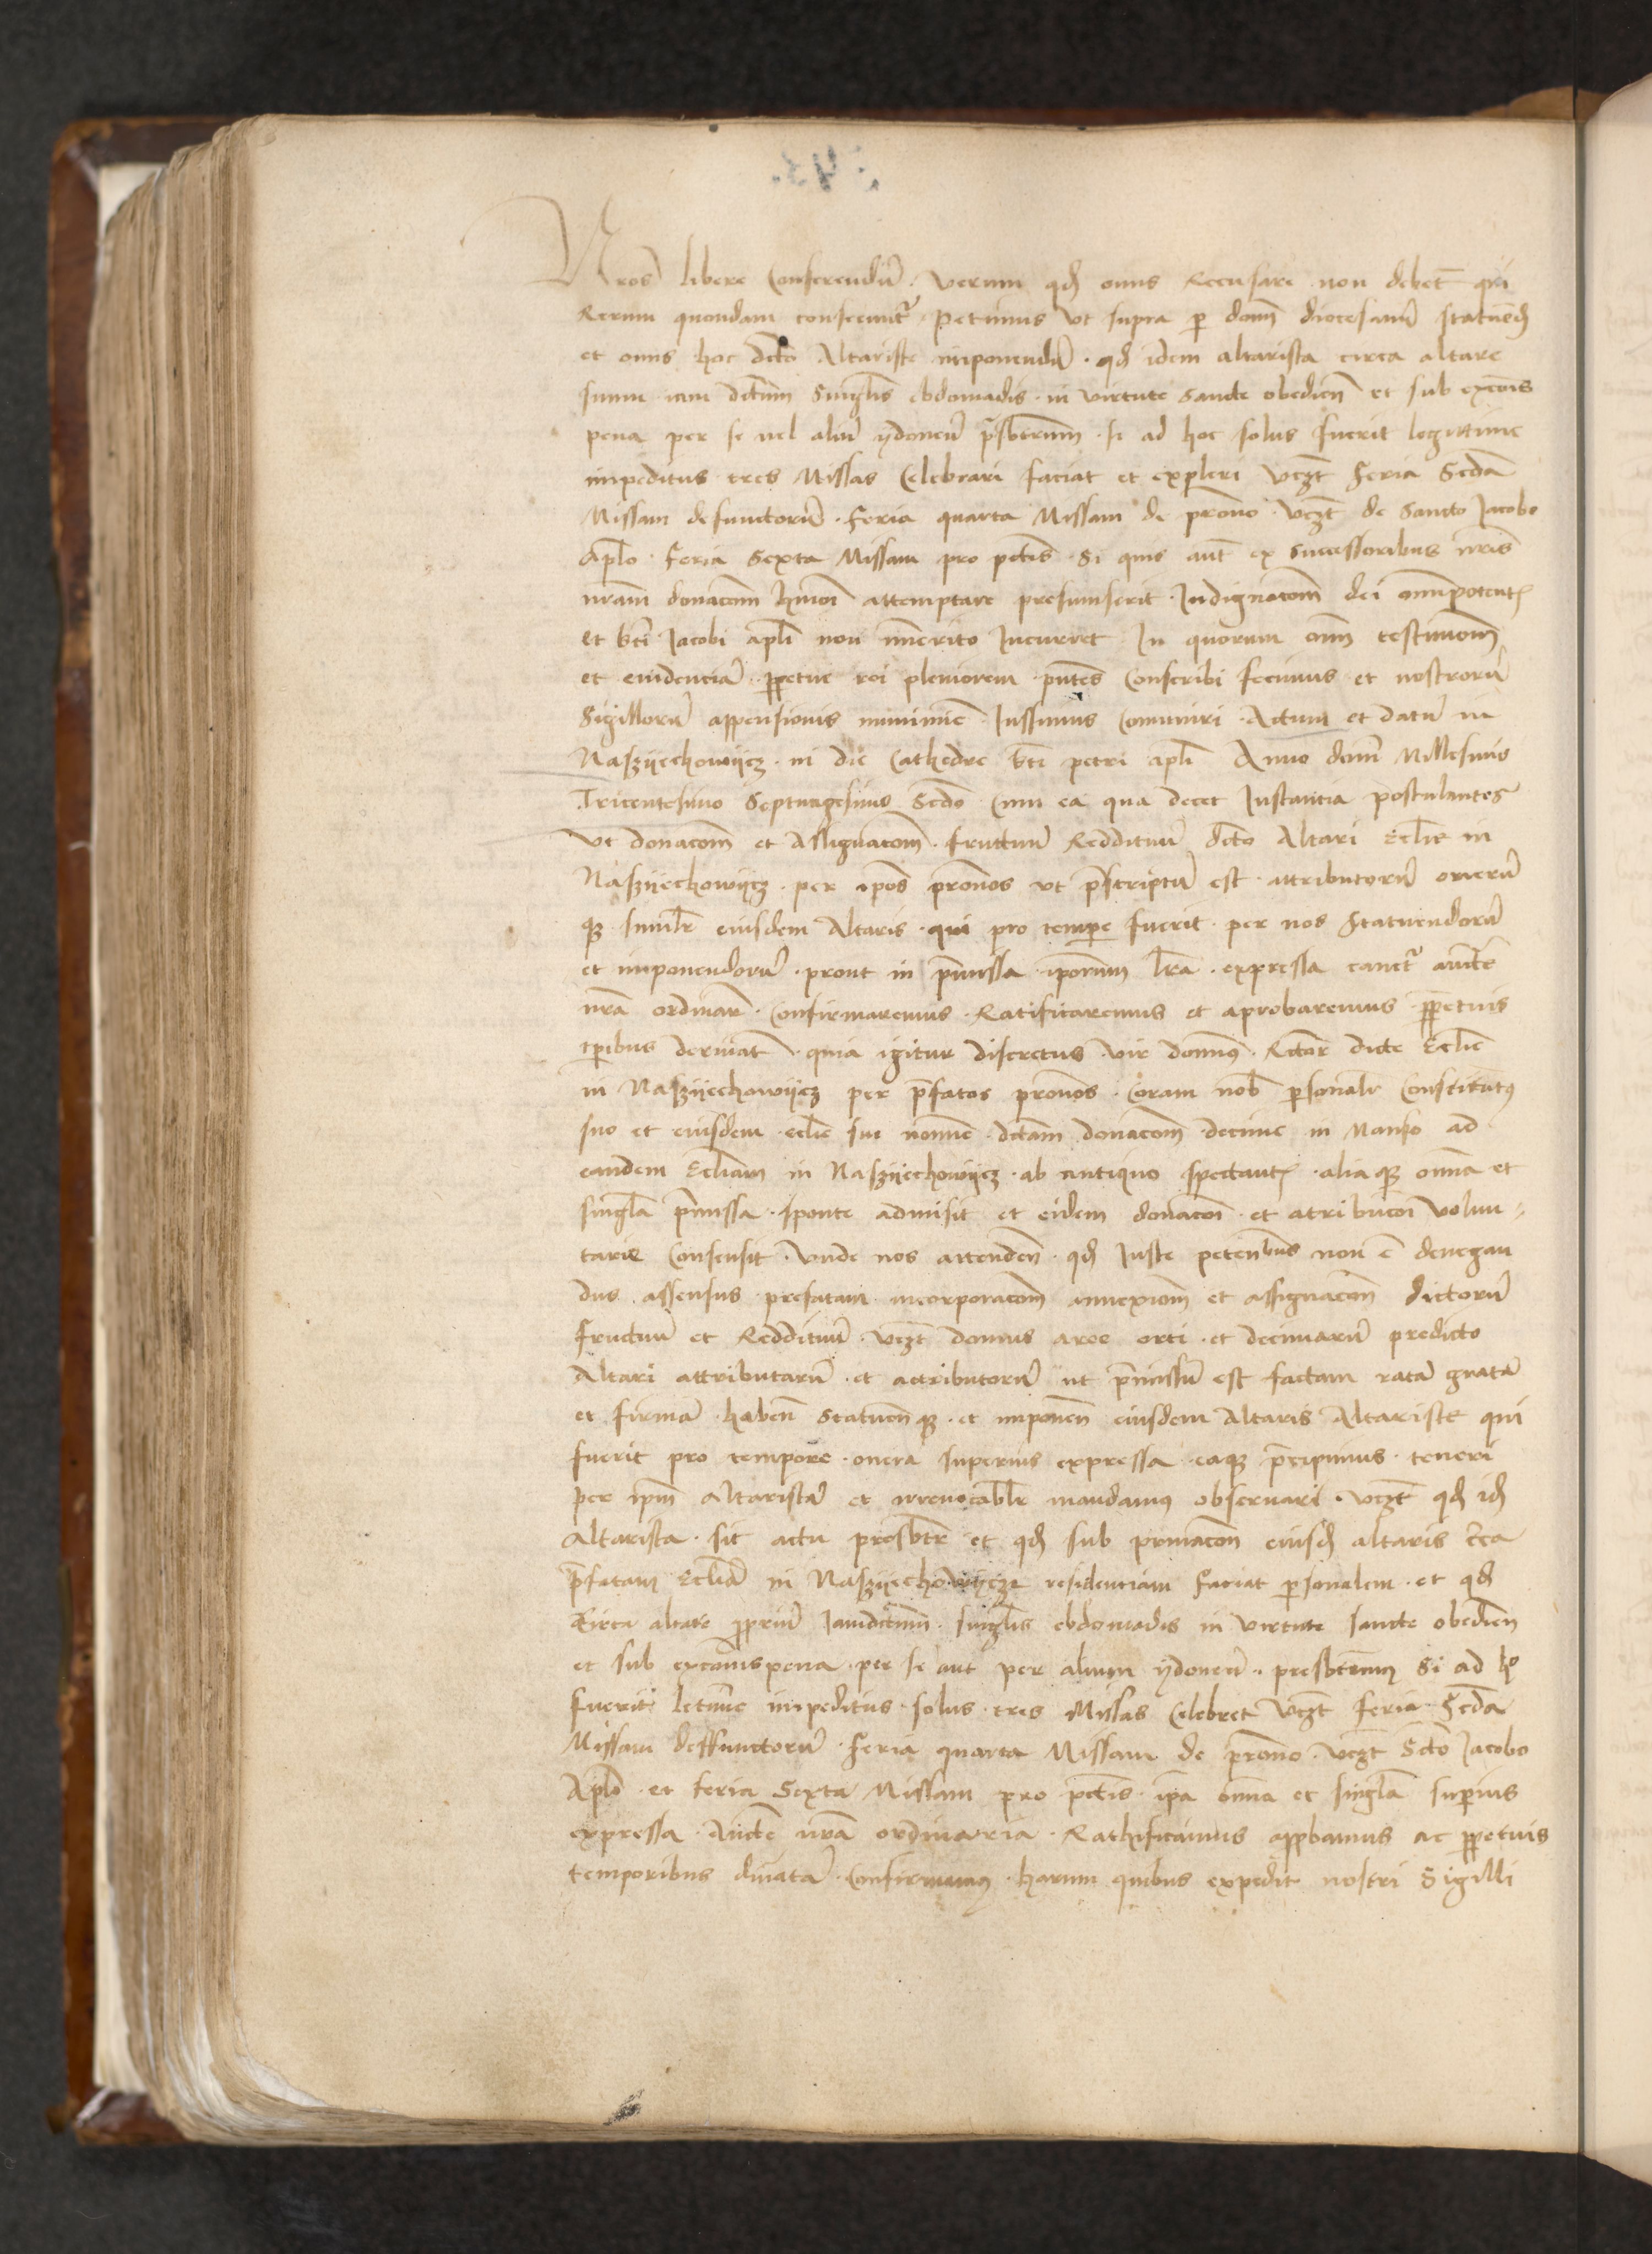 Nros libere Conferendũ. verum qd onus Recusare non debet qui
Rerum quondam consecunt᷑ petimus vt supra p dom̃ diocesanũ statuend
et onus hoc dcto Altariste imponendũ. qd idem altarista circa altare
suum iam dictum Singlis ebdomadis. in virtute sancte obedien̄ et sub excōis
pena per se uel aliũ ydoneũ pr̃sbterum. si ad hoc solus fuerit legittime
impeditus tres Missas Celebrari faciat et expleri vczt Feria Scda
Missam defunctorũ. Feria quarta Missam de prono. vczt de Sancto Jacobo
Aplo. Feria Sexta Missam pro pctis. Si quis aut̃ ex successoribus nr̃is
nram̃ donacōm hmōi attemptare presumserit. Indignacōm dei omnipotent
et bti Jacobi apli non immerito Incurret. In quorum om̃ testimom̃
et euidenciã. ppetue rei pleniorem pñtes Conscribi fecimus et nostrorũ
Sigillorũ appensionis munimie Jussimus Comuniri. Actum et datũ in
Naszyechowycz. in die Cathedre bti petri apli Anno domi Millesimo
Tricentesimo Septuagesimo Scdo Cum ea qua decet Instantia postulantes
vt donacōm et Assignacōm. fructuũ Reddituũ dcto Altari Eclie in
Naszyechowycz. per ipos pronos vt pr̃scriptũ est. attributorũ onerũ
q; simil̃r eiusdem Altaris. qui pro tempe fuerit. per nos Statuendorũ
et imponendorũ. prout in pr̃missa iporum lr̃a. expressa cauet᷑ aucte
nrã ordinar̃. Confirmaremus. Ratificaremus et aprobaremus ppetuis
tpibus. quia igitur discretus vir domnus. Rctor dicte Eclie
in Naszyechowycz per pr̃fatos pronos. Coram nob personal̃r Constitutus
suo et eiusdem eclie sue nomine dctam donacōm decime in Manko ad
eandem Ecliam in Naszyechowycz. ab antiquo spectant. aliaq; omnia et
singla pr̃missa. sponte admisit et eidem donacōi et atribucōi volun-
tarie Consensit. Vnde nos attenden̄. qd Juste petentibus non ē denegan
dus assensus prefatam incorporacōm annexiom̃ et assignacōm dictorũ
fructuũ et Reddituũ. vczt domus aree orti. et decimarũ predicto
Altari attributarũ. et actributorũ ut pr̃missũ est factam ratã gratã
et firmã haben̄ Statuen̄q;. et imponen̄ eiusdem Altaris Altariste qui
fuerit pro tempore. onera superius expressa eaq; pr̃cipimus. teneri
per ipm Altaristã et irreuocabl̃r mandamus obseruari. vczt qd id
Altarista. sit actu prosbter et qd sub priuacōn eiusd altaris c̃ca
pr̃fatam Ecliã in Naszyechowycze residentiam faciat psonalem. et qd
Circa altare ppriũ Jamdictum. singlis ebdomadis in virtute sancte obedien̄
et sub excōmispena. per se aut per alium ydoneũ. presbterum Si ad ho
fuerit letime impeditus. solus. tres Missas Celebret vczt feria Scda
Missam deffunctorũ. Feria quarta Missam de prono. vczt Scto Jacobo
Aplo et feria Sexta Missam pro pctis. ipa omnia et singla superius
expressa. Aucte nrã ordinaria. Rathificamus appbamus ac ppetuis
temporibus Confirmamus. harum quibus expedit nostri Sigilli